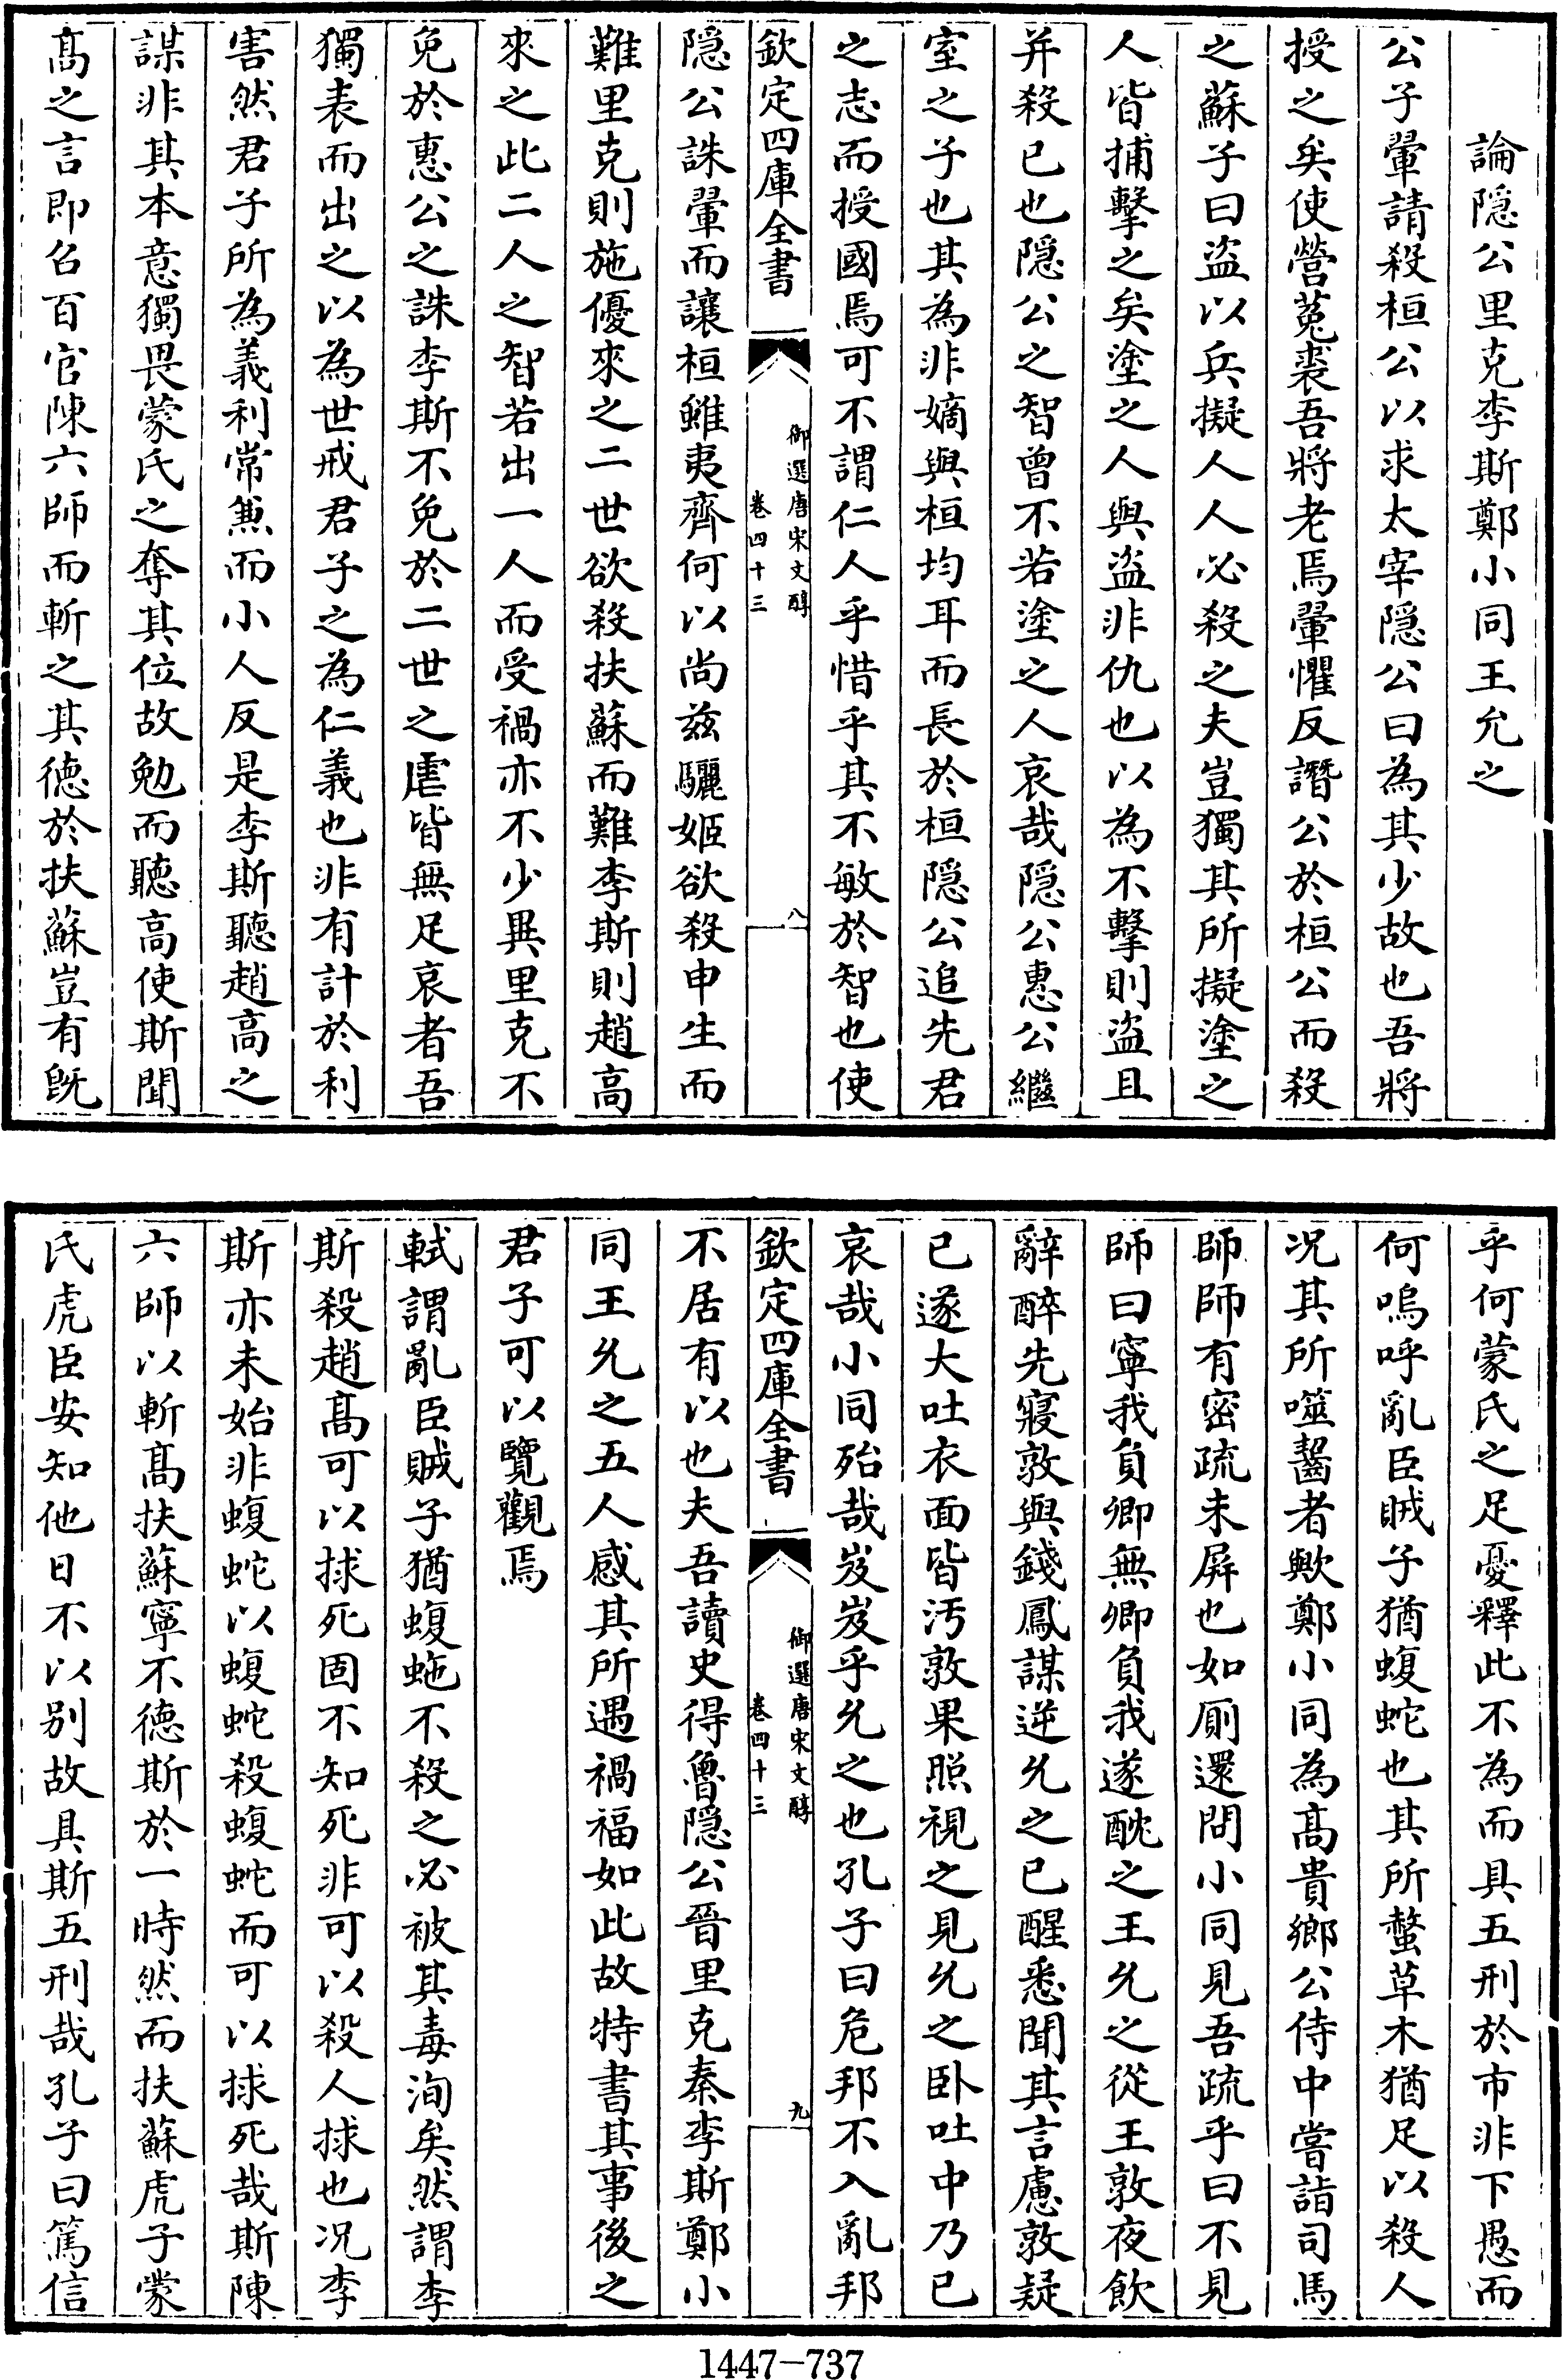 論隠公里克李斯鄭小同王允之
公子翬請殺桓公以求太宰隠公曰為其少故也吾將
授之矣使營菟裘吾將老焉翬懼反譖公於桓公而殺
之蘇子曰盜以兵擬人人必殺之夫豈獨其所擬塗之
人皆捕擊之矣塗之人與盜非仇也以為不擊則盜且
并殺已也隠公之智曾不若塗之人哀哉隠公惠公繼
室之子也其為非嫡與桓均耳而長於桓隠公追先君
之志而授國焉可不謂仁人乎惜乎其不敏於智也使
欽定四庫全書
御選唐宋文醇
卷四十三
八
隠公誅翬而讓桓雖夷齊何以尚兹驪姬欲殺申生而
難里克則施優來之二世欲殺扶蘇而難李斯則趙高
來之此二人之智若出一人而受禍亦不少異里克不
免於惠公之誅李斯不免於二世之虐皆無足哀者吾
獨表而出之以為世戒君子之為仁義也非有計於利
害然君子所為義利常兼而小人反是李斯聽趙高之
謀非其本意獨畏蒙氏之奪其位故勉而聽高使斯聞
髙之言即召百官陳六師而斬之其徳於扶蘇豈有旣
乎何蒙氏之足憂釋此不為而具五刑於市非下愚而
何嗚呼亂臣賊子猶蝮蛇也其所螫草木猶足以殺人
况其所噬齧者歟鄭小同為髙貴鄉公侍中嘗詣司馬
師師有密疏未屏也如厠還問小同見吾疏乎曰不見
師曰寧我負卿無卿負我遂酖之王允之從王敦夜飲
辭醉先寢敦與錢鳳謀逆允之已醒悉聞其言慮敦疑
已遂大吐衣面皆汚敦果照視之見允之卧吐中乃已
哀哉小同殆哉岌岌乎允之也孔子曰危邦不入亂邦
欽定四庫全書
御選唐宋文醇
卷四十三
九
不居有以也夫吾讀史得魯隠公晉里克秦李斯鄭小
同王允之五人感其所遇禍福如此故特書其事後之
君子可以覽觀焉
軾謂亂臣賊子猶蝮虵不殺之必被其毒洵矣然謂李
斯殺趙髙可以捄死固不知死非可以殺人捄也况李
斯亦未始非蝮蛇以蝮蛇殺蝮蛇而可以捄死哉斯陳
六師以斬髙扶蘇寧不徳斯於一時然而扶蘇虎子蒙
氏虎臣安知他日不以别故具斯五刑哉孔子曰篤信
1447-737